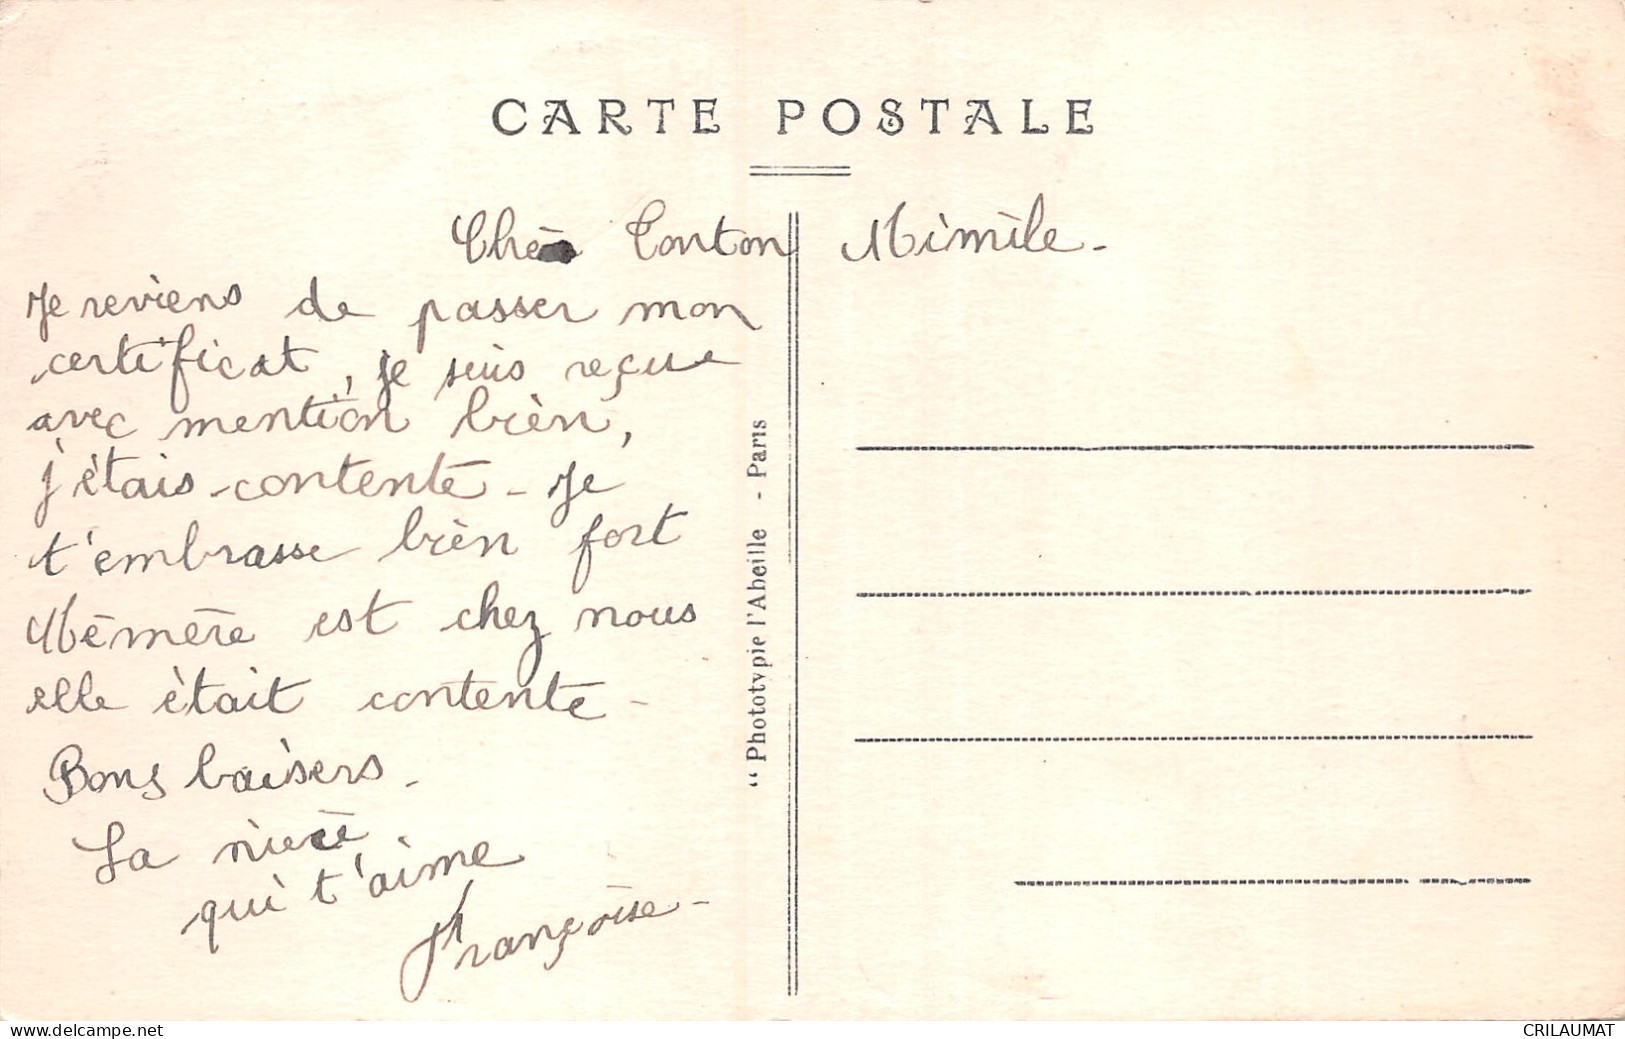 CARTE POSTALE
Tonton Mimile -
Je reviens de passer mon
certificat, je suis reçue
avec mention bien,
j'étais contente - Je
t'embrasse bien fort
Mémère est chez nous
elle était contente -
Bons baisers -
La nièce
qui t'aime
Françoise -
“ Phototypie l'Abeille - Paris
delcampe.net
CRILAUMAT